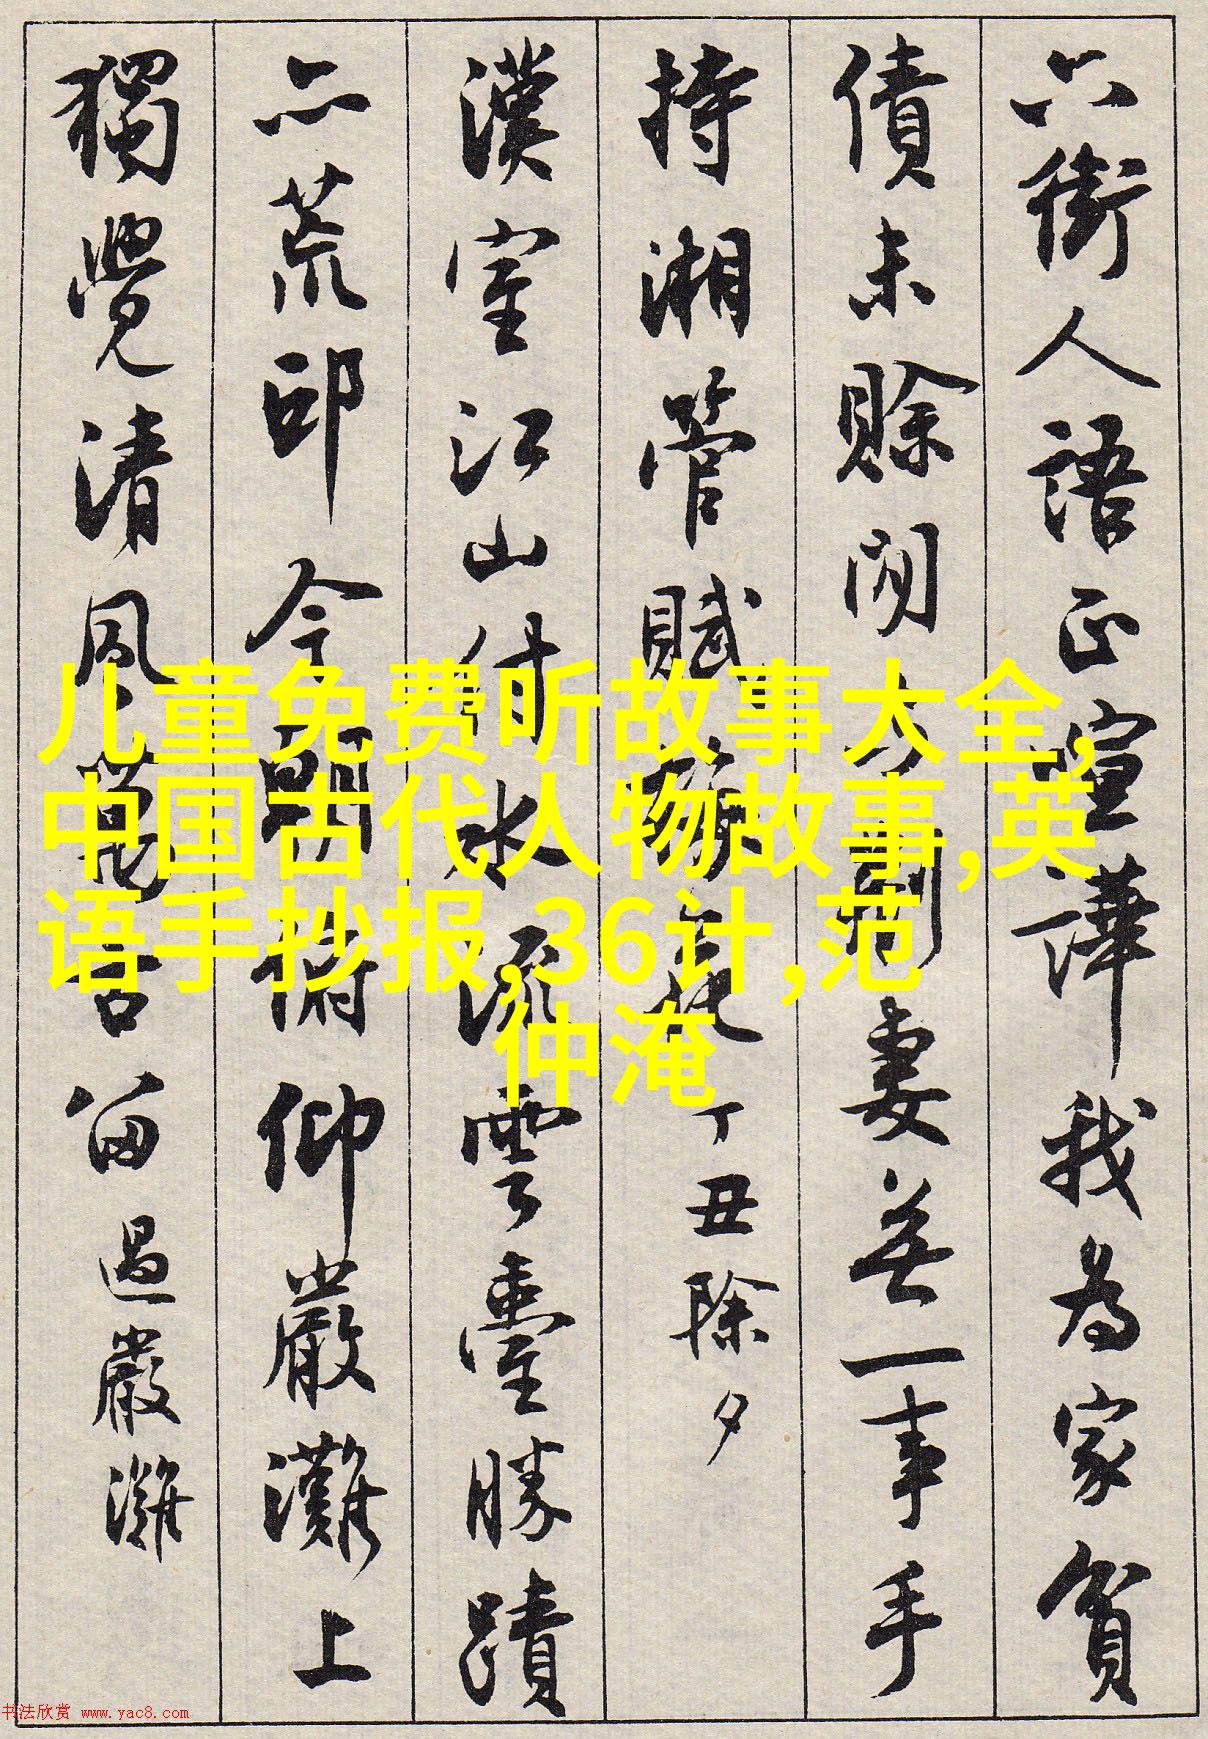 六街人語正喧譁我為家貧
債未賒閒妻無一事手
持湘管賦梅花丁丑除夕
漢室江山付水流雲臺勝蹟
亦荒邱今朝俯仰嚴灘上
獨覺清風萬古留過嚴灘
儿童免费听故事大全,
中国古代人物故事,英
语手抄报,36计,范
仲淹
书法欣赏 www.yac8.com